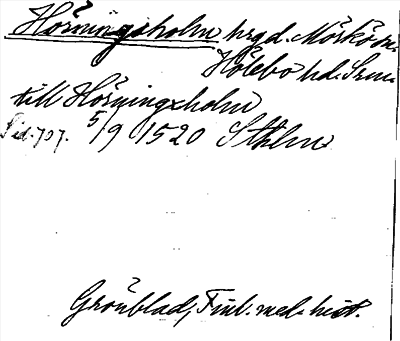 Hörningsholm hrgd. Mörkö sn.
Hölebo hd. Srm.
till Hörningxholm
Sid. 707. 5/9 1520 Sthlm
Grönblad, Finl. med. hist.